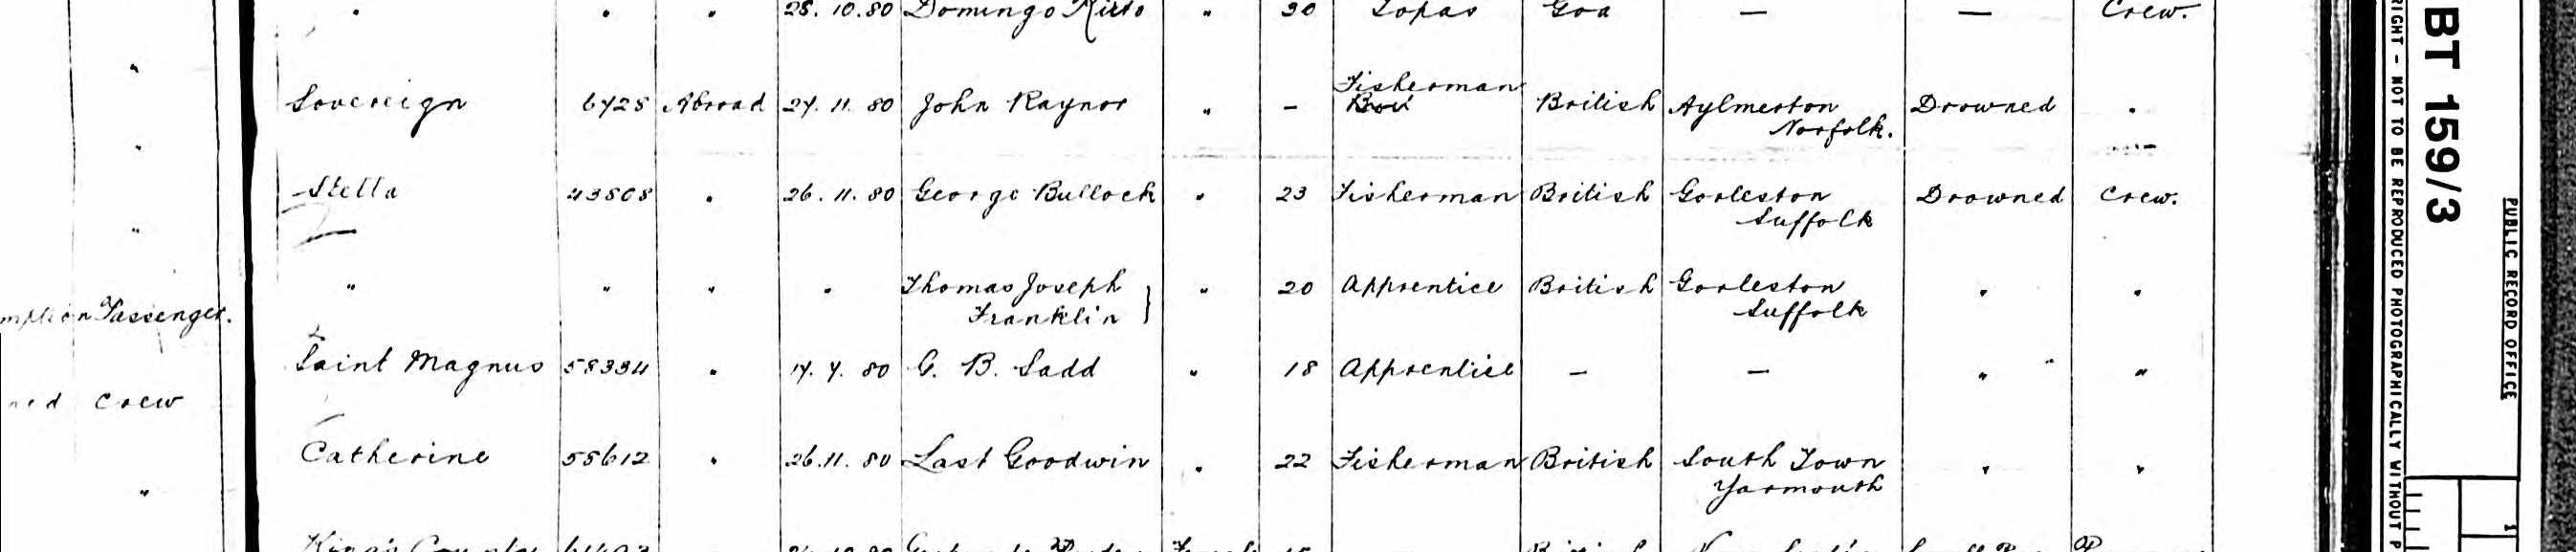 " " " 28.10.80 Domingo " 30 Topas Goa — — Crew.
"
Sovereign 6728 Abroad 27.11.80 John Raynor " — Fisherman British Aylmerton Norfolk. Drowned "
"
Stella 43808 " 26.11.80 George Bullock " 23 Fisherman British Gorleston Suffolk Drowned Crew.
"
" " " " Thomas Joseph Franklin } " 20 Apprentice British Gorleston Suffolk " "
Passenger.
Saint Magnus 58334 " 17.7.80 G. B. Sadd " 18 Apprentice — — " "
Crew
Catherine 55612 " 26.11.80 Last Goodwin " 22 Fisherman British South Town Yarmouth " "
"
King's County Female British
BT 159/3
RIGHT - NOT TO BE REPRODUCED PHOTOGRAPHICALLY WITHOUT P
PUBLIC RECORD OFFICE